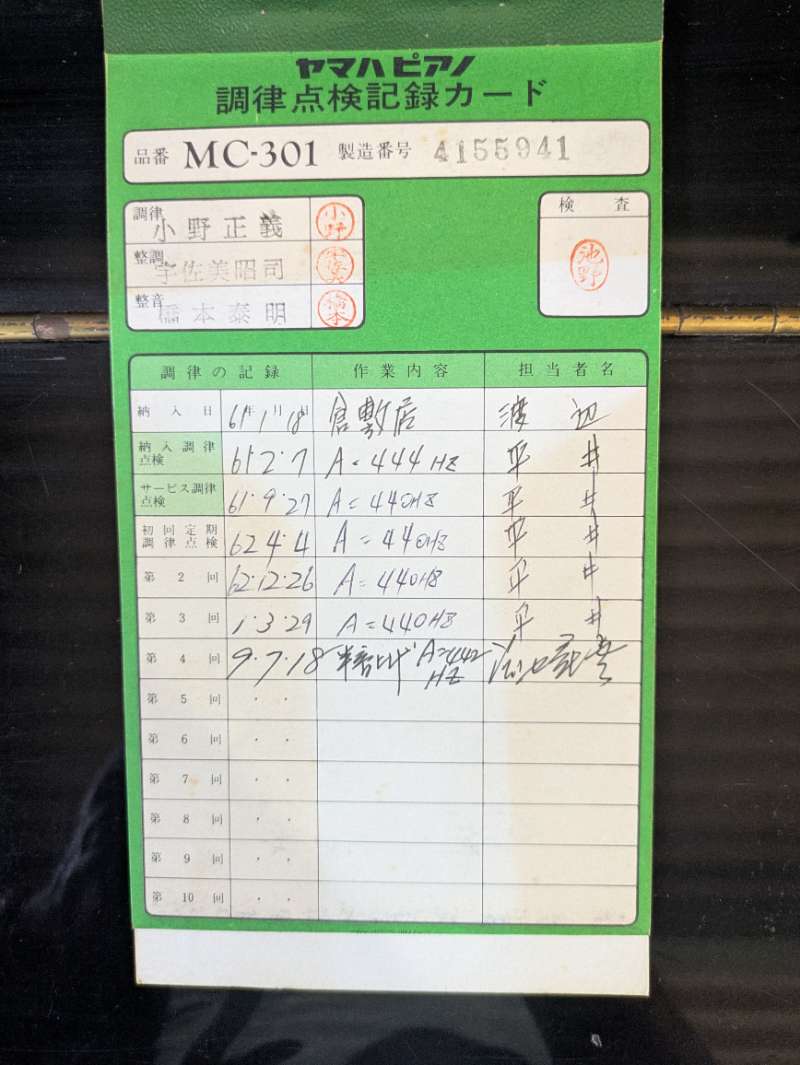 ヤマハピアノ
調律点検記録カード
品番 MC-301 製造番号 4155941
調律 小野正義 小野
整調 宇佐美昭司
整音 橋本泰明 橋本
検査
池野
調律の記録 作業内容 担当者名
納入日 61年1月18日 倉敷店 渡辺
納入調律点検 61・2・7 A=444HZ 平井
サービス調律点検 61・9・27 A=440HZ 平井
初回定期調律点検 62 4・4 A=440HZ 平井
第2回 62・12・26 A=440HZ 平井
第3回 1・3・29 A=440HZ 平井
第4回 9・7・18 A=442HZ
第5回 ・ ・
第6回 ・ ・
第7回 ・ ・
第8回 ・ ・
第9回 ・ ・
第10回 ・ ・